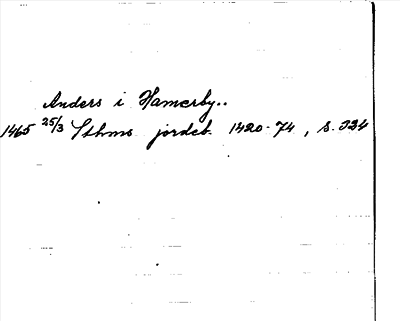 Anders i Hamerby..
1465 25/3 Sthms jordeb. 1420-74, s. 324